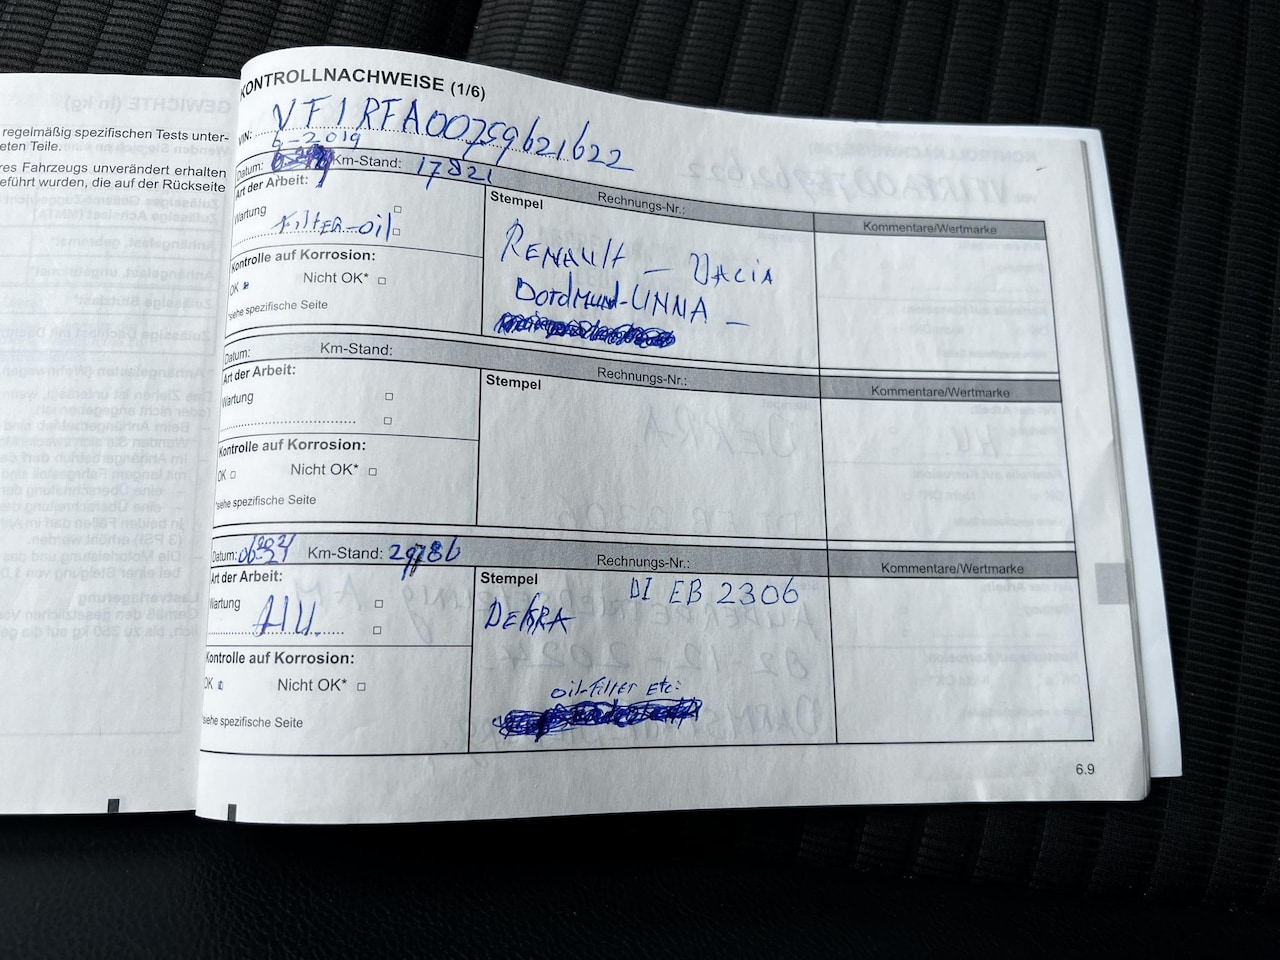 regelmäßig spezifischen Tests unter-
eten Teile.
res Fahrzeugs unverändert erhalten
eführt wurden, die auf der Rückseite
KONTROLLNACHWEISE (1/6)
VIN: VF1RFA00759621622
6-2019
Datum: Km-Stand: 17821 Rechnungs-Nr.:
Art der Arbeit:
Wartung
Filter-oil
Kontrolle auf Korrosion:
OK Nicht OK*
*siehe spezifische Seite
Stempel
RENAULT – DACIA
Dordmund-UNNA –
Kommentare/Wertmarke
Datum: Km-Stand: Rechnungs-Nr.:
Art der Arbeit:
Wartung
Kontrolle auf Korrosion:
OK Nicht OK*
*siehe spezifische Seite
Stempel
Kommentare/Wertmarke
Datum: 06- 2021 Km-Stand: 29786 Rechnungs-Nr.:
Art der Arbeit:
Wartung
HU
Kontrolle auf Korrosion:
OK Nicht OK*
*siehe spezifische Seite
Stempel
DI EB 2306
DEKRA
oil-filter etc:
Kommentare/Wertmarke
6.9